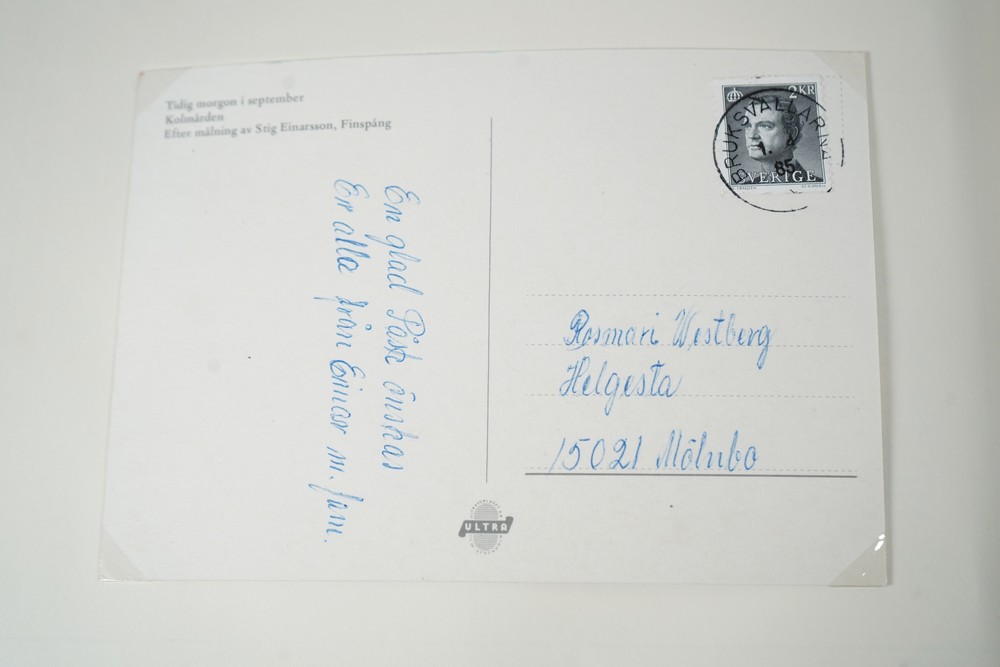 Tidig morgon i september
Kolmården
Efter målning av Stig Einarsson, Finspång
En glad Påsk önskas
Er alla från Einar m. fam.
2 KR
SVERIGE
BRUKSVALLARNA
1. 4
85
Rosmari Westberg
Helgesta
15021 Mölnbo
ULTRA